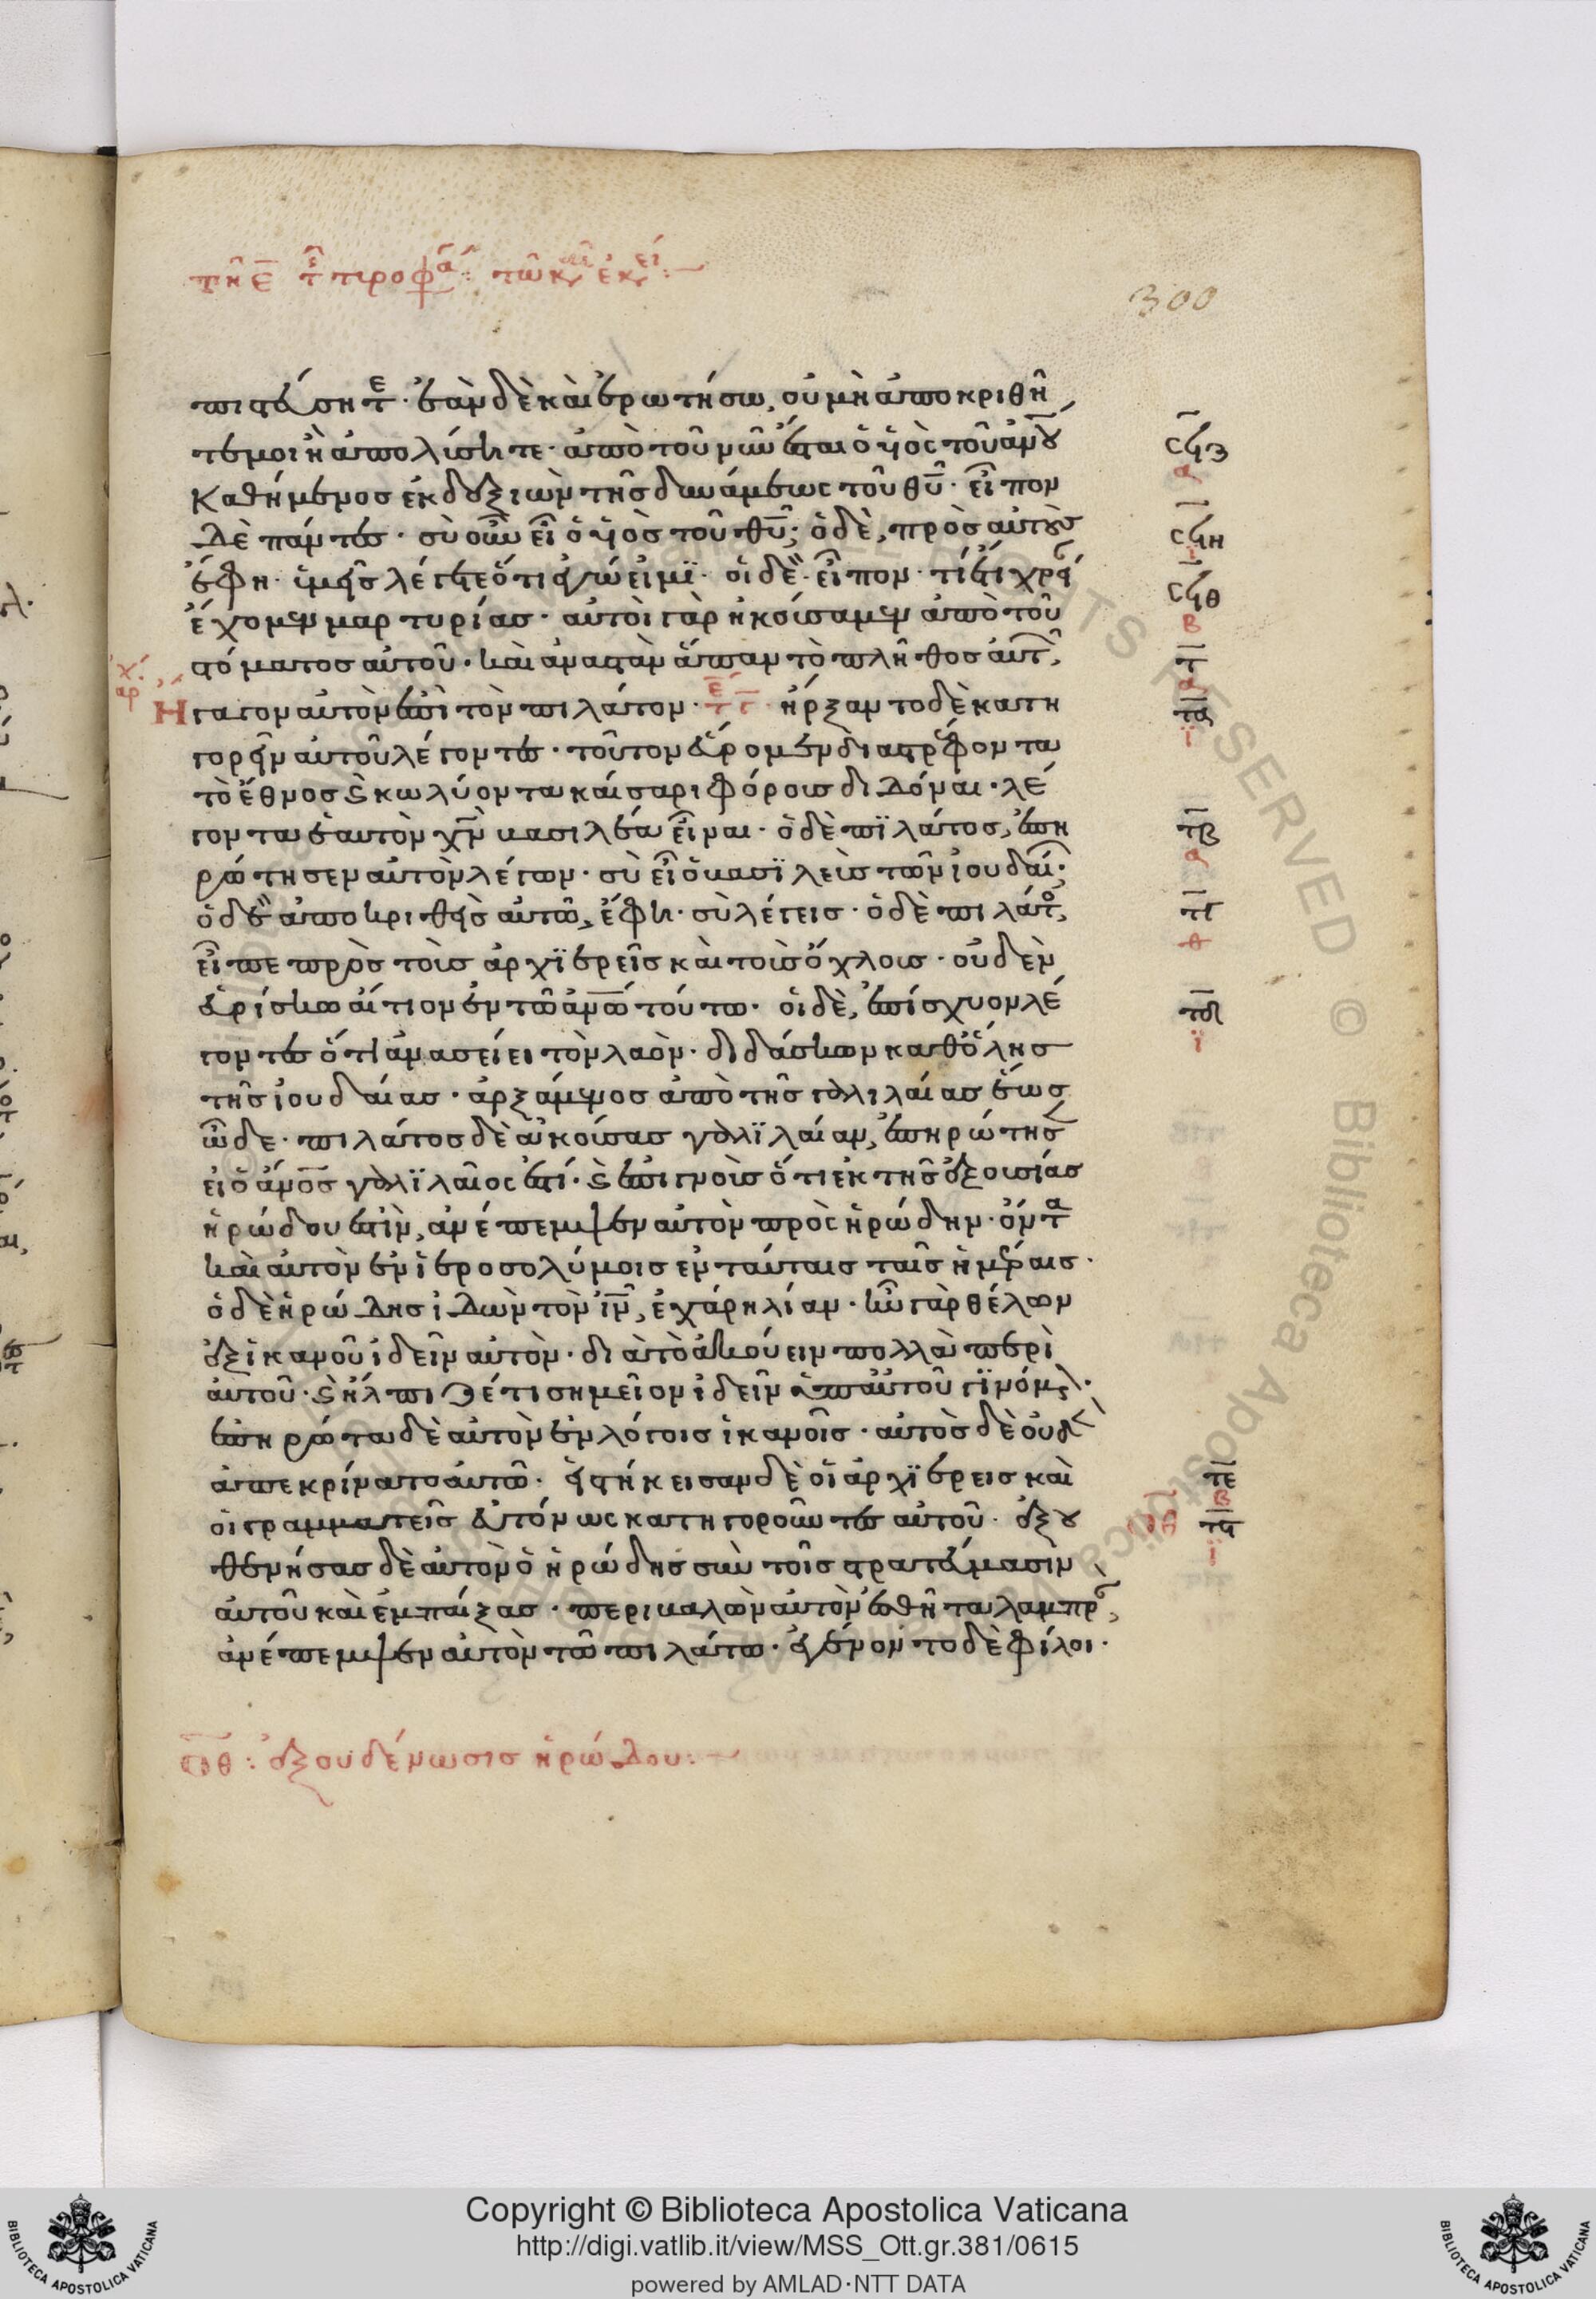 τῆ ε̅ τ̑ προφα: τῶ κ ἐκ:
300
πιστεύσητε· ἐὰν δὲ καὶ ἐρωτήσω, οὐ μὴ ἀποκριθῆ
τέ μοι ἢ ἀπολύσητε· ἀπὸ τοῦ νῦν ἔσται ὁ ὑὸς τοῦ ἀνου
καθήμενος ἐκ δεξιῶν τῆς δυνάμεως τοῦ θυ̅· εἶπον
δὲ πάντες· σὺ οὖν εἶ ὁ ὑὸς τοῦ θυ̅; ὁ δὲ, πρὸς αὐτοὺς
ἔφη· ὑμεῖς λέγετε ὅτι ἐγώ εἰμϊ· οἱ δὲ· εἶπον· τί ἔτι χρεί
ἔχομεν μαρτυρίας· αὐτοὶ γὰρ ἠκούσαμεν ἀπὸ τοῦ
στόματος αὐτοῦ· καὶ ἀναστὰν ἅπαν τὸ πλῆθος αὐτ,
χ
αρ
Ηγαγον αὐτὸν ἐπὶ τὸν πιλάτον· ἤρξαντο δὲ κατη
γορεῖν αὐτοῦ λέγοντες· τοῦτον εὕρομεν διαστρέφοντα
τὸ ἔθνος ϗ κωλύοντα καίσαρι φόρους διδόναι· λέ
γοντα ἑαυτὸν χν̅ βασιλέα εἶναι· ὁ δὲ πϊλάτος, ἐπη
ρώτησεν αὐτὸν λέγων· σὺ εἶ ὁ βασϊλεὺς τῶν ἰουδαί;
ὁ δὲ ἀποκριθεὶς αὐτῶ, ἔφη· σὺ λέγεις· ὁ δὲ πιλάτο,
εἶπε πρὸς τοὺς ἀρχϊερεῖς καὶ τοὺς ὄχλους· οὐδὲν
εὑρίσκω αἴτιον ἐν τῶ ἀνω̅ τούτω· οἱ δὲ, ἐπίσχυον λέ
γοντες ὅτι ἀνασείει τὸν λαὸν· διδάσκων καθ' ὅλης
τῆς ἰουδαίας· ἀρξάμενος ἀπὸ τῆς γαλιλαίας ἕως
ὧδε· πιλάτος δὲ ἀκούσας γαλϊλαίαν, ἐπηρώτησ
εἰ ὁ ἀνο̅ς γαλϊλαῖος ἐστί· ϗ ἐπιγνοὺς ὅτι ἐκ τῆς ἐξουσίας
ἡρώδου ἐστὶν, ἀνέπεμψεν αὐτὸν πρὸς ἡρώδην· ὄντα
καὶ αὐτὸν ἐν ἱεροσολύμοις ἐν ταύταις ταῖς ἡμέραις·
ὁ δὲ ἡρώδης ἰδὼν τὸν ἰν̅, ἐχάρη λίαν· ἦν γὰρ θέλων
ἐξ ἱκανοῦ ἰδεῖν αὐτὸν· διὰ τὸ ἀκούειν πολλὰ περὶ
αὐτοῦ· ϗ ἤλπιζέ τι σημεῖον ἰδεῖν ὑπ' αὐτοῦ γϊνόμε·
ἐπηρώτα δὲ αὐτὸν ἐν λόγοις ἱκανοῖς· αὐτὸς δὲ οὐδὲ
ἀπεκρίνατο αὐτῶ· εἱστήκεισαν δὲ οἱ ἀρχϊερεις καὶ
οἱ γραμματεῖς εὐτόνως κατηγοροῦντες αὐτοῦ· ἐξου
θενήσας δὲ αὐτὸν ὁ ἡρώδης σὺν τοῖς στρατεύμασιν
αὐτοῦ καὶ ἐμπαίξας· περιβαλὼν αὐτὸν ἐσθῆτα λαμπρ,
ἀνέπεμψεν αὐτὸν τῶ πιλάτω· ἐγένοντο δὲ φίλοι·
οθ: ἐξουδένωσις ἡρώδου:
Copyright © Biblioteca Apostolica Vaticana
http://digi.vatlib.it/view/MSS_Ott.gr.381/0615
powered by AMLAD·NTT DATA